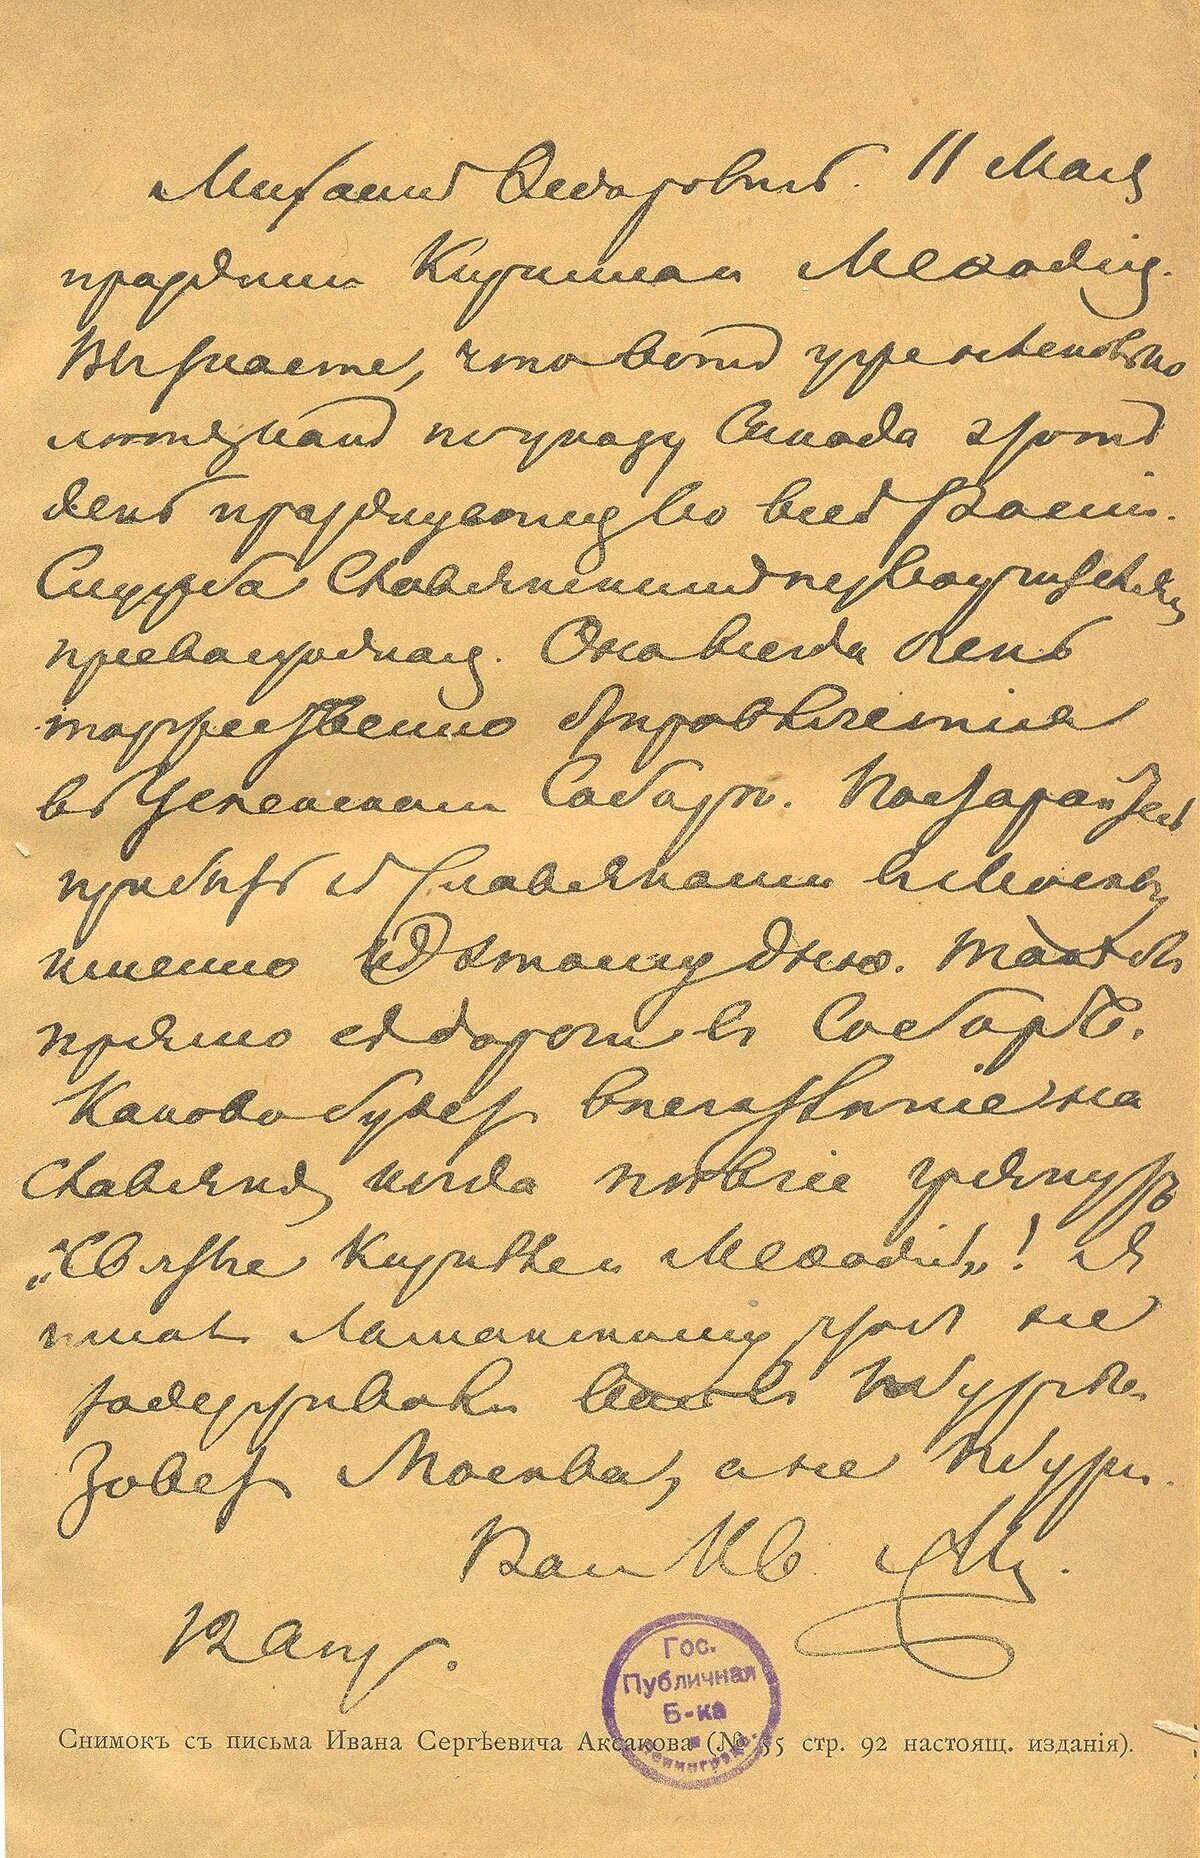 Михаилъ Ѳедоровичъ. 11 Мая
праздникъ Кирилла и Меѳодія.
Вы знаете, что вотъ уже нѣсколько
лѣтъ назадъ по указу Синода этотъ
день празднуется во всей Россіи.
Служба Славянскимъ первоучителямъ
превосходная. Она всегда очень
торжественно отправляется
въ Успенскомъ Соборѣ. Постарайтесь
прибыть съ Славянами въ Москву
именно къ этому дню.
прямо съ дороги въ Соборъ.
Каково будетъ впечатлѣніе на
Славянъ, когда пѣвчіе грянутъ
„Святые Кирилле и Меѳодіе„! Я
писалъ Ламанскому, чтобъ не
задерживали васъ въ Птбургѣ.
Зоветъ Москва, а не Птбургъ.
Вашъ Ив. Акс.
12 Апр.
Гос.
Публичная
Б-ка
в
Ленинграде.
Снимокъ съ письма Ивана Сергѣевича Аксакова (№ 55 стр. 92 настоящ. изданія).